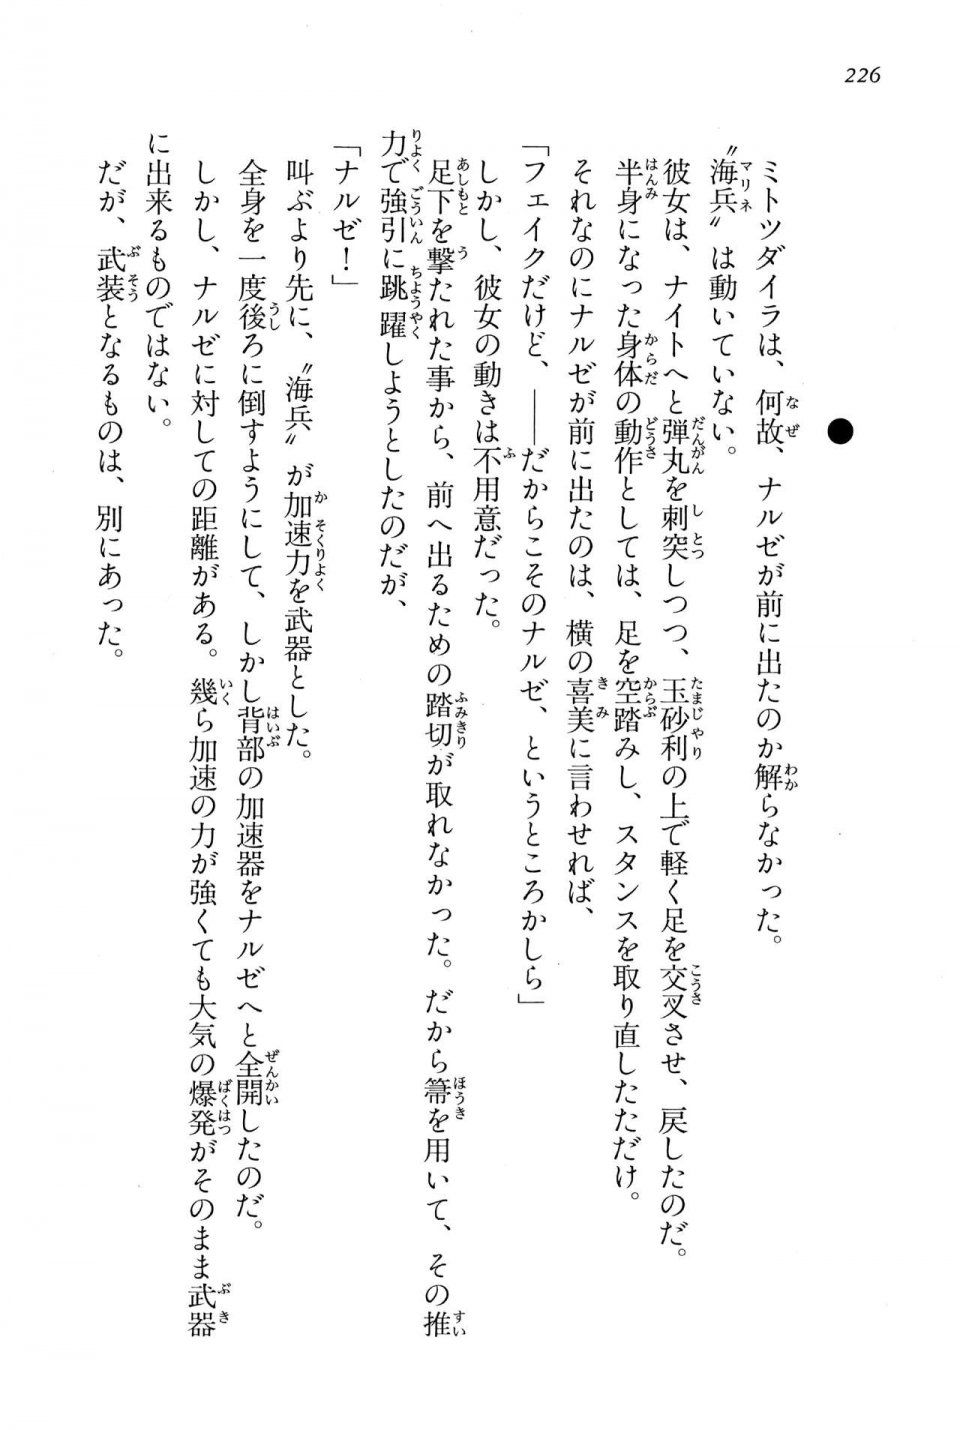 226
●
ミトツダイラは、何故、ナルゼが前に出たのか解らなかった。
〝海兵〟は動いていない。
彼女は、ナイトへと弾丸を刺突しつつ、玉砂利の上で軽く足を交叉させ、戻したのだ。
半身になった身体の動作としては、足を空踏みし、スタンスを取り直しただけ。
それなのにナルゼが前に出たのは、横の喜美に言わせれば、
「フェイクだけど、――だからこそのナルゼ、というところかしら」
しかし、彼女の動きは不用意だった。
足下を撃たれた事から、前へ出るための踏切が取れなかった。だから箒を用いて、その推
力で強引に跳躍しようとしたのだが、
「ナルゼ！」
叫ぶより先に、〝海兵〟が加速力を武器とした。
全身を一度後ろに倒すようにして、しかし背部の加速器をナルゼへと全開したのだ。
しかし、ナルゼに対しての距離がある。幾ら加速の力が強くても大気の爆発がそのまま武器
に出来るものではない。
だが、武装となるものは、別にあった。